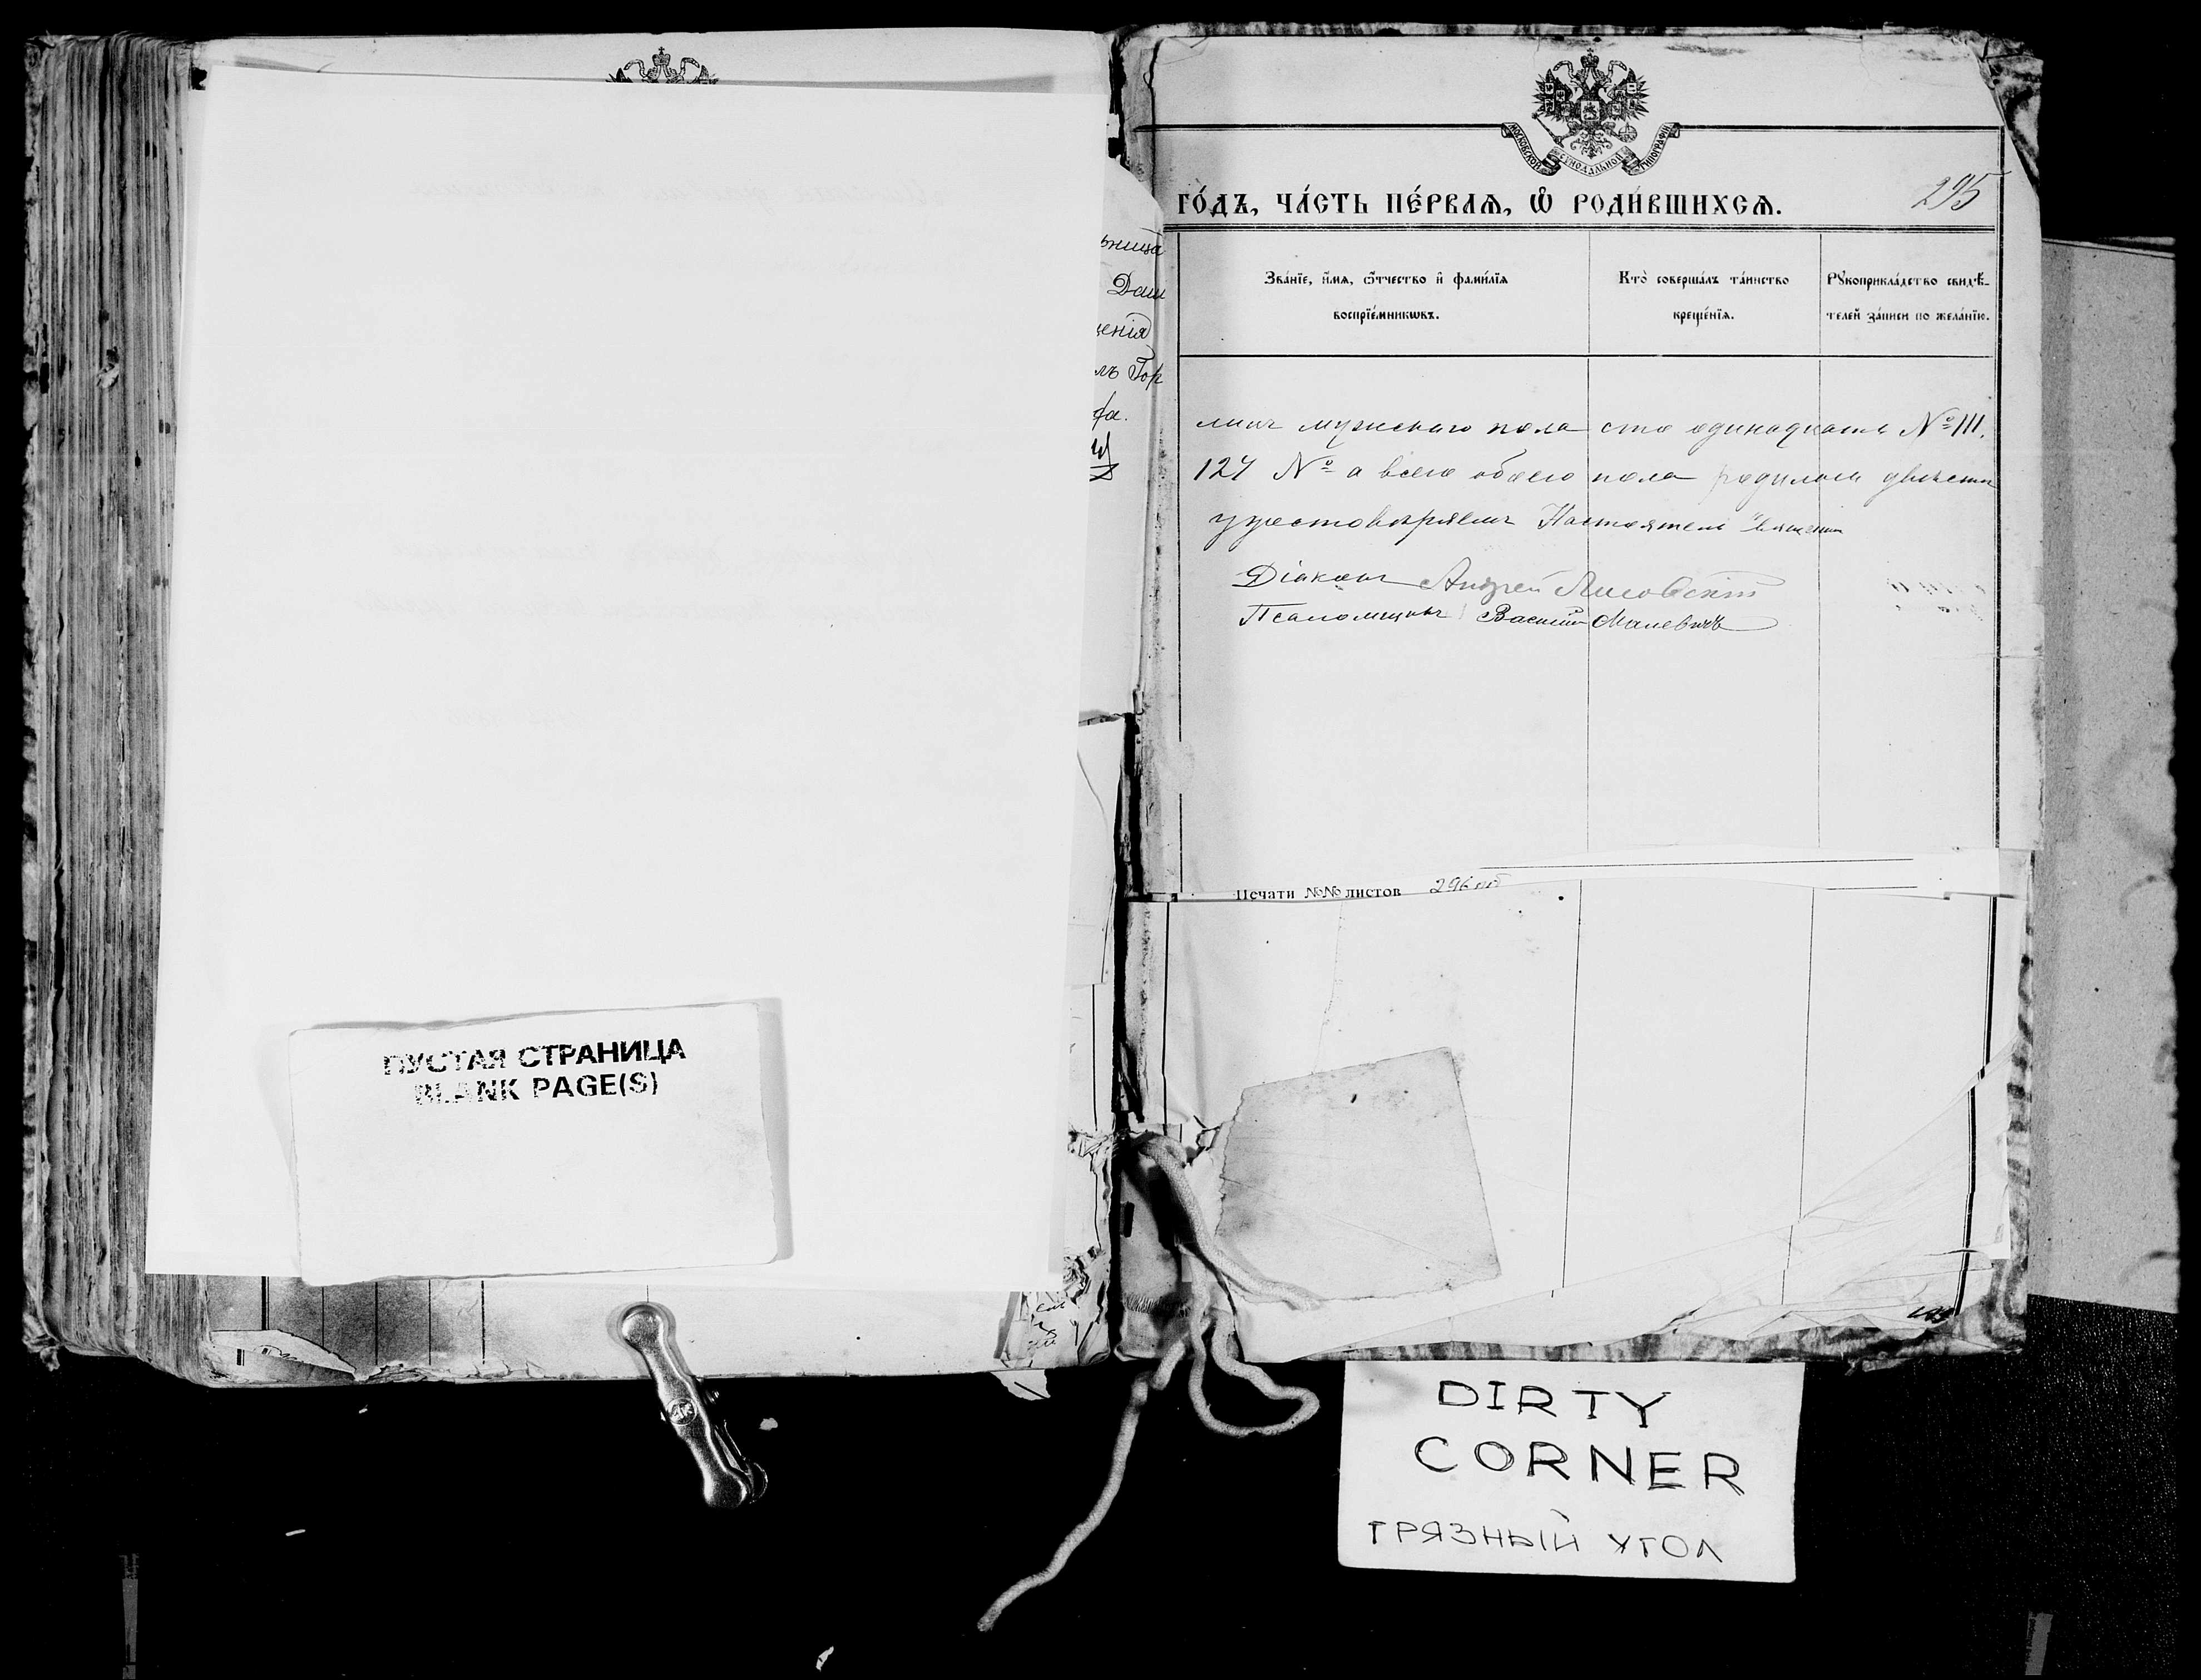 ПУСТАЯ СТРАНИЦА
BLANK PAGE(S)
Дом
МОСКОВСКОЙ СѴНОДАЛЬНОЙ ТИПОГРАФІИ
ГО́ДЪ, ЧА́СТЬ ПЕ́РВАЯ, Ѽ РОДИ́ВШИХСЯ.
295
Зва́нїе, и҆́мя, ѻ҆́тчество и҆ фами́лїа
воспрїе́мниковъ.
Кто̀ соверша́лъ та́инство
креще́нїя.
Рꙋкоприкла́дство свидѣ́-
телей за́писи по жела́нїю.
мужскаго пола сто одинадцать № 111.
127 № а всего обоего пола родилось двѣсти
удостовѣряемъ Настоятель Священ
Діаконъ Андрей Лисовскій
Псаломщикъ Василій Малевичъ
Печати №№ листов 296 об
DIRTY
CORNER
ГРЯЗНЫЙ УГОЛ